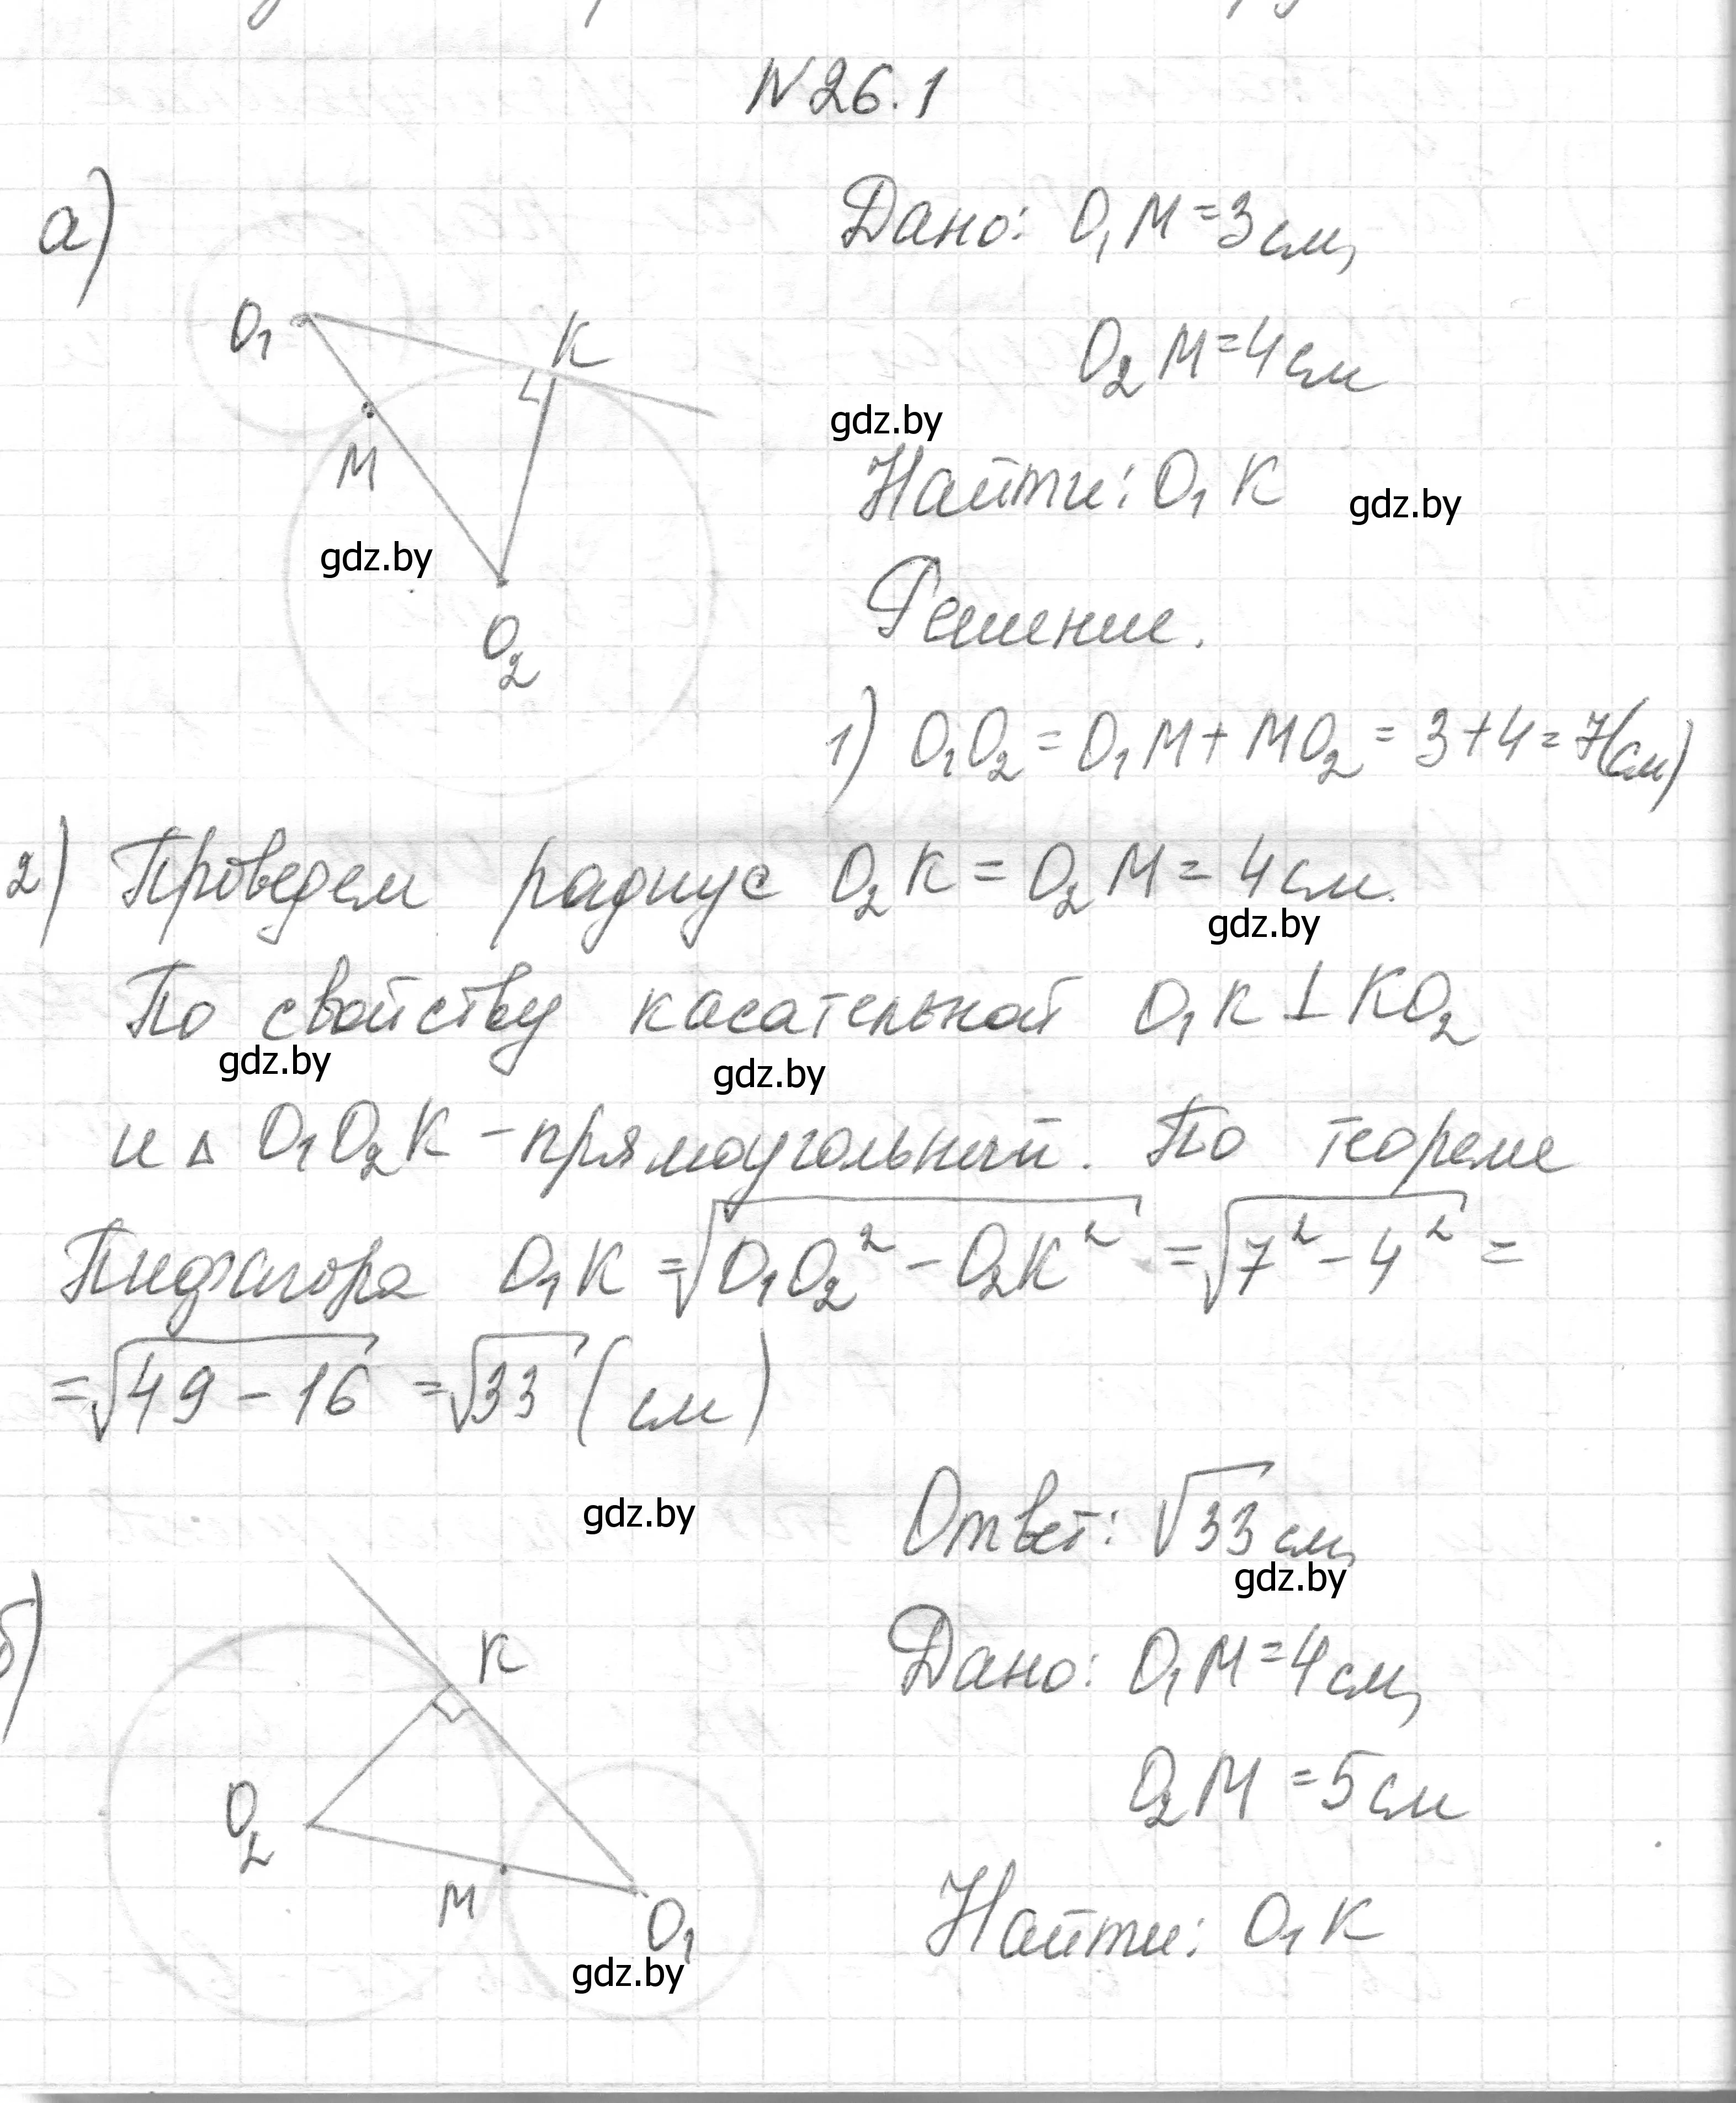 N 26.1
а)
Дано: O₁M = 3 см,
O₂M = 4 см
O₁
K
M
O₂
gdz.by
Найти: O₁K
gdz.by
gdz.by
Решение.
1) O₁O₂ = O₁M + MO₂ = 3 + 4 = 7(см)
2) Проведем радиус O₂K = O₂M = 4 см.
gdz.by
По свойству касательной O₁K ⊥ KO₂
gdz.by
gdz.by
и △ O₁O₂K - прямоугольный. По теореме
Пифагора O₁K = √(O₁O₂² - O₂K²) = √(7² - 4²) =
= √(49 - 16) = √33 (см)
gdz.by
Ответ: √33 см,
gdz.by
б)
Дано: O₁M = 4 см,
O₂M = 5 см
K
O₂
M
O₁
gdz.by
Найти: O₁K